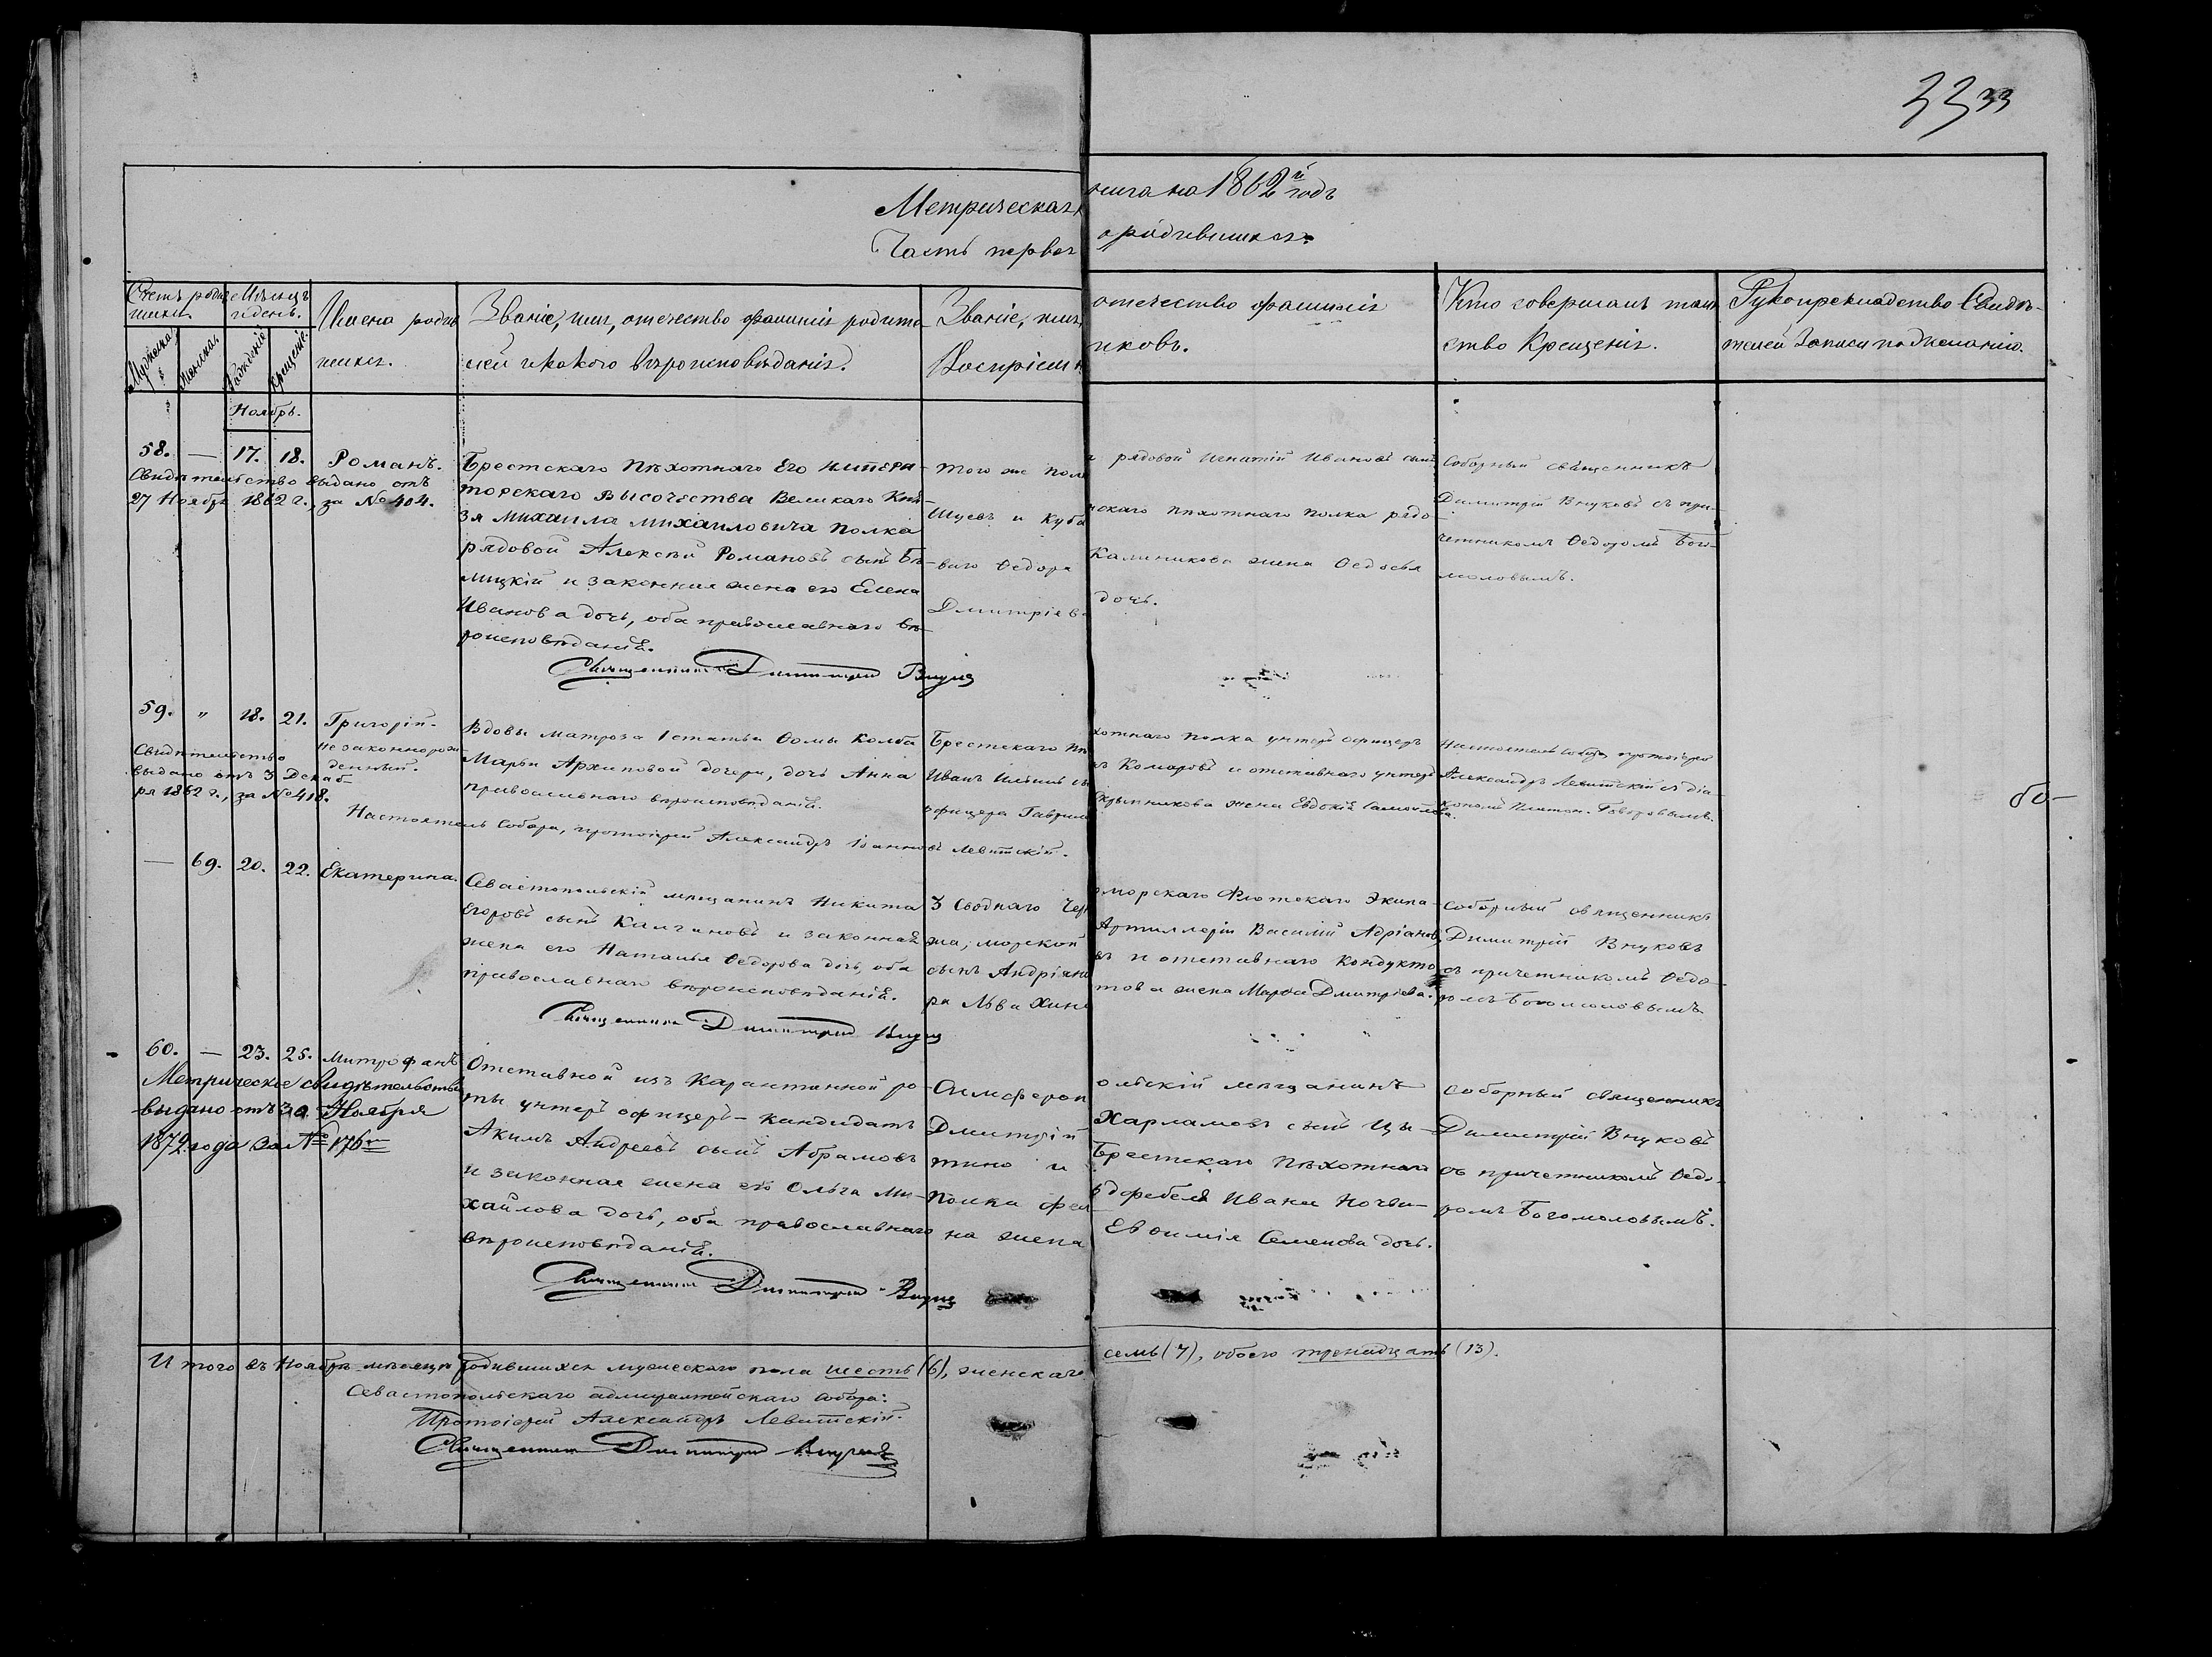 33 33
Метрическая книга на 1862й годъ
Часть первая о родившихся.
Счетъ родившихся.
Мужеска
Женска
Мѣсяцъ и день.
Рожденіе
Крещеніе
Имена родившихся.
Званіе, имя, отечество фамилія родителей и какого вѣроисповѣданія.
Званіе, имя, отечество фамилія
Воспріемниковъ.
Кто совершалъ таинство Крещенія.
Рукоприкладство Свидѣтелей Записи по желанію.
Ноябрь.
58. — 17. 18. Романъ.
Свидѣтельство выдано отъ
27 Ноября 1862 г., за № 404.
Брестскаго Пѣхотнаго Его Импера-
торскаго Высочества Великаго Кня-
зя Михаила Михаиловича Полка
рядовой Алексѣй Романовъ сынъ Бѣ-
лицкій и законная жена его Елена
Иванова дочь, оба православнаго вѣ-
роисповѣданія.
Того же полка рядовой Игнатій Ивановъ сынъ
Шуевъ и Куба нскаго пѣхотнаго полка рядо-
ваго Федора Калиникова жена Федосья
Дмитріева дочь.
Соборный священникъ
Димитрій Внуковъ съ при-
четникомъ Федоромъ Бого-
моловымъ.
Священникъ Димитрій Внуковъ
59. " 18. 21. Григорій-
незаконнорож-
денный.
Свидѣтельство
выдано отъ 3 Декаб-
ря 1862 г., за № 418.
Вдовы матроза 1 статьи Фомы Колба
Марьи Архиповой дочери, дочь Анна
православнаго вѣроисповѣданія.
Брестскаго Пѣхотнаго полка унтеръ офицеръ
Иванъ Ильинъ сынъ Комаровъ и отставнаго унтеръ
офицера Гаврила Скрыпникова жена Евдокія Самойлова.
Настоятель Собора, протоіерей
Александръ Левитскій съ діа-
кономъ Платон. Говоровымъ.
бо-
Настоятель Собора, протоіерей Александръ Іоанновъ Левитскій.
— 69. 20. 22. Екатерина.
Севастопольскій мѣщанинъ Никита
Егоровъ сынъ Калгановъ и законная
жена его Наталья Федорова дочь, оба
православнаго вѣроисповѣданія.
3 Своднаго Черноморскаго Флотскаго Экипа-
жа, морской Артиллеріи Василій Адріановъ
сынъ Андріановъ и отставнаго кондукто-
ра Льва Хинетова жена Марфа Дмитріева.
Соборный священникъ
Димитрій Внуковъ
съ причетникомъ Федо-
ромъ Богомоловымъ
Священникъ Димитрій Внуковъ
60. — 23. 25. Митрофанъ
Метрическое свидѣтельство
выдано отъ 30 Ноября
1872 года за № 176м
Отставной изъ Карантинной ро-
ты унтеръ офицеръ-кандидатъ
Акимъ Андреевъ сынъ Абрамовъ
и законная жена его Ольга Ми-
хайлова дочь, оба православнаго
вѣроисповѣданія.
Симферопольскій мѣщанинъ
Дмитрій Харламовъ сынъ Цы-
тино и Брестскаго Пѣхотнаго
Полка фельдфебеля Ивана Ночви-
на жена Евфимія Семенова дочь.
Соборный священникъ
Димитрій Внуковъ
съ причетникомъ Федо-
ромъ Богомоловымъ.
Священникъ Димитрій Внуковъ
Итого въ Ноябрѣ мѣсяцѣ родившихся мужескаго пола шесть (6), женскаго семь (7), обоего тринадцать (13).
Севастопольскаго адмиралтейскаго Собора:
Протоіерей Александръ Левитскій.
Священникъ Димитрій Внуковъ